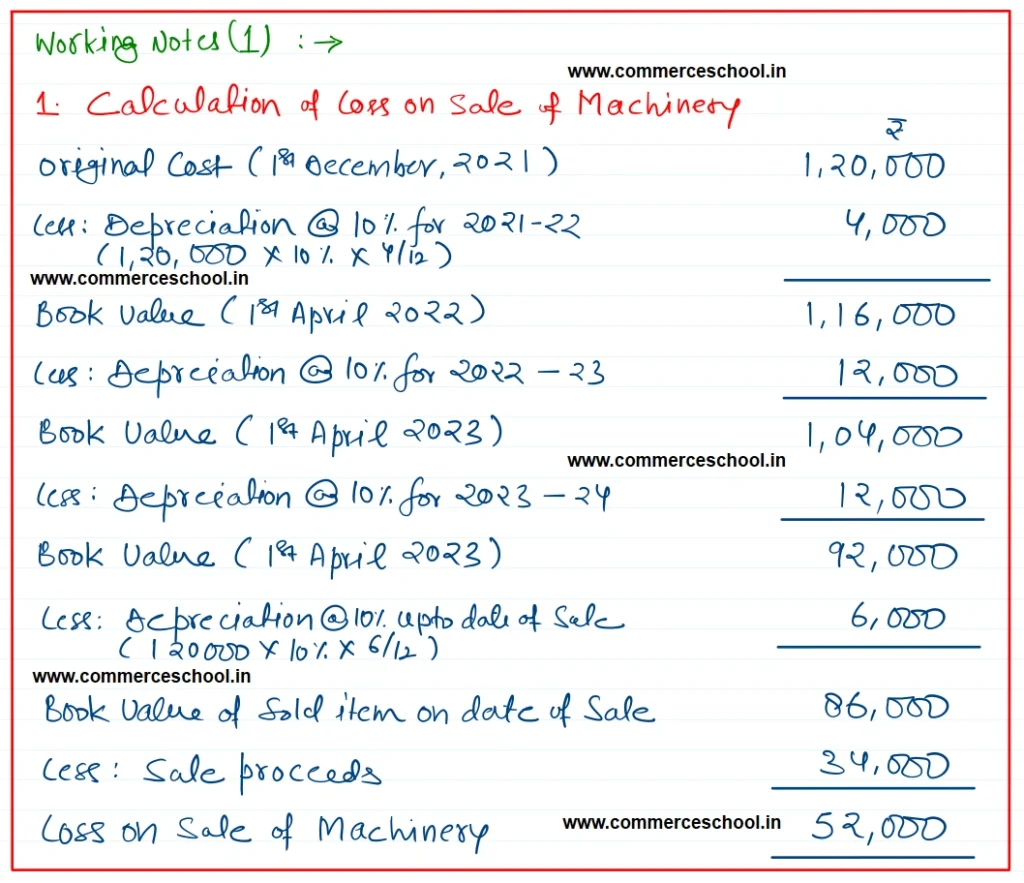 Working Notes (1) :→
www.commerceschool.in
1. Calculation of Loss on Sale of Machinery
₹
Original Cost (1st December, 2021) 1,20,000
Less: Depreciation @ 10% for 2021-22 4,000
(1,20,000 X 10% X 4/12)
www.commerceschool.in
Book Value (1st April 2022) 1,16,000
Less: Depreciation @ 10% for 2022-23 12,000
Book Value (1st April 2023) 1,04,000
www.commerceschool.in
Less: Depreciation @ 10% for 2023-24 12,000
Book Value (1st April 2023) 92,000
Less: Depreciation @ 10% upto date of Sale 6,000
(120000 X 10% X 6/12)
www.commerceschool.in
Book Value of Sold item on date of Sale 86,000
Less: Sale proceeds 34,000
Loss on Sale of Machinery www.commerceschool.in 52,000